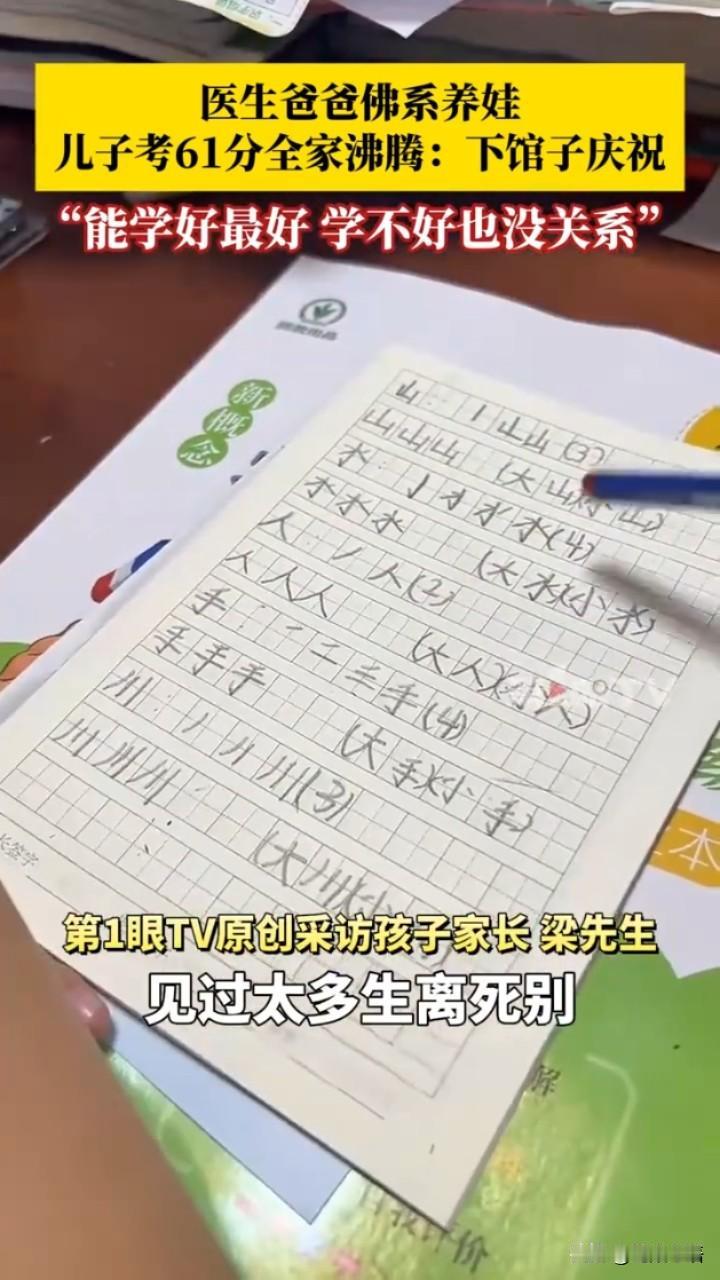 医生爸爸佛系养娃
儿子考61分全家沸腾：下馆子庆祝
“能学好最好 学不好也没关系”
新概念
山：丨 山山(3)
山山山 (大山)(小山)
水：亅 水(4)
水水水 (大水)(小水)
人：丿 人(2)
人人人 (大人)(小人)
手：一 二 三 手(4)
手手手 (大手)(小手)
州：丿 川 州(3)
川川川 (大川)(小
长签字
本
第1眼TV原创采访孩子家长 梁先生
见过太多生离死别
解
价